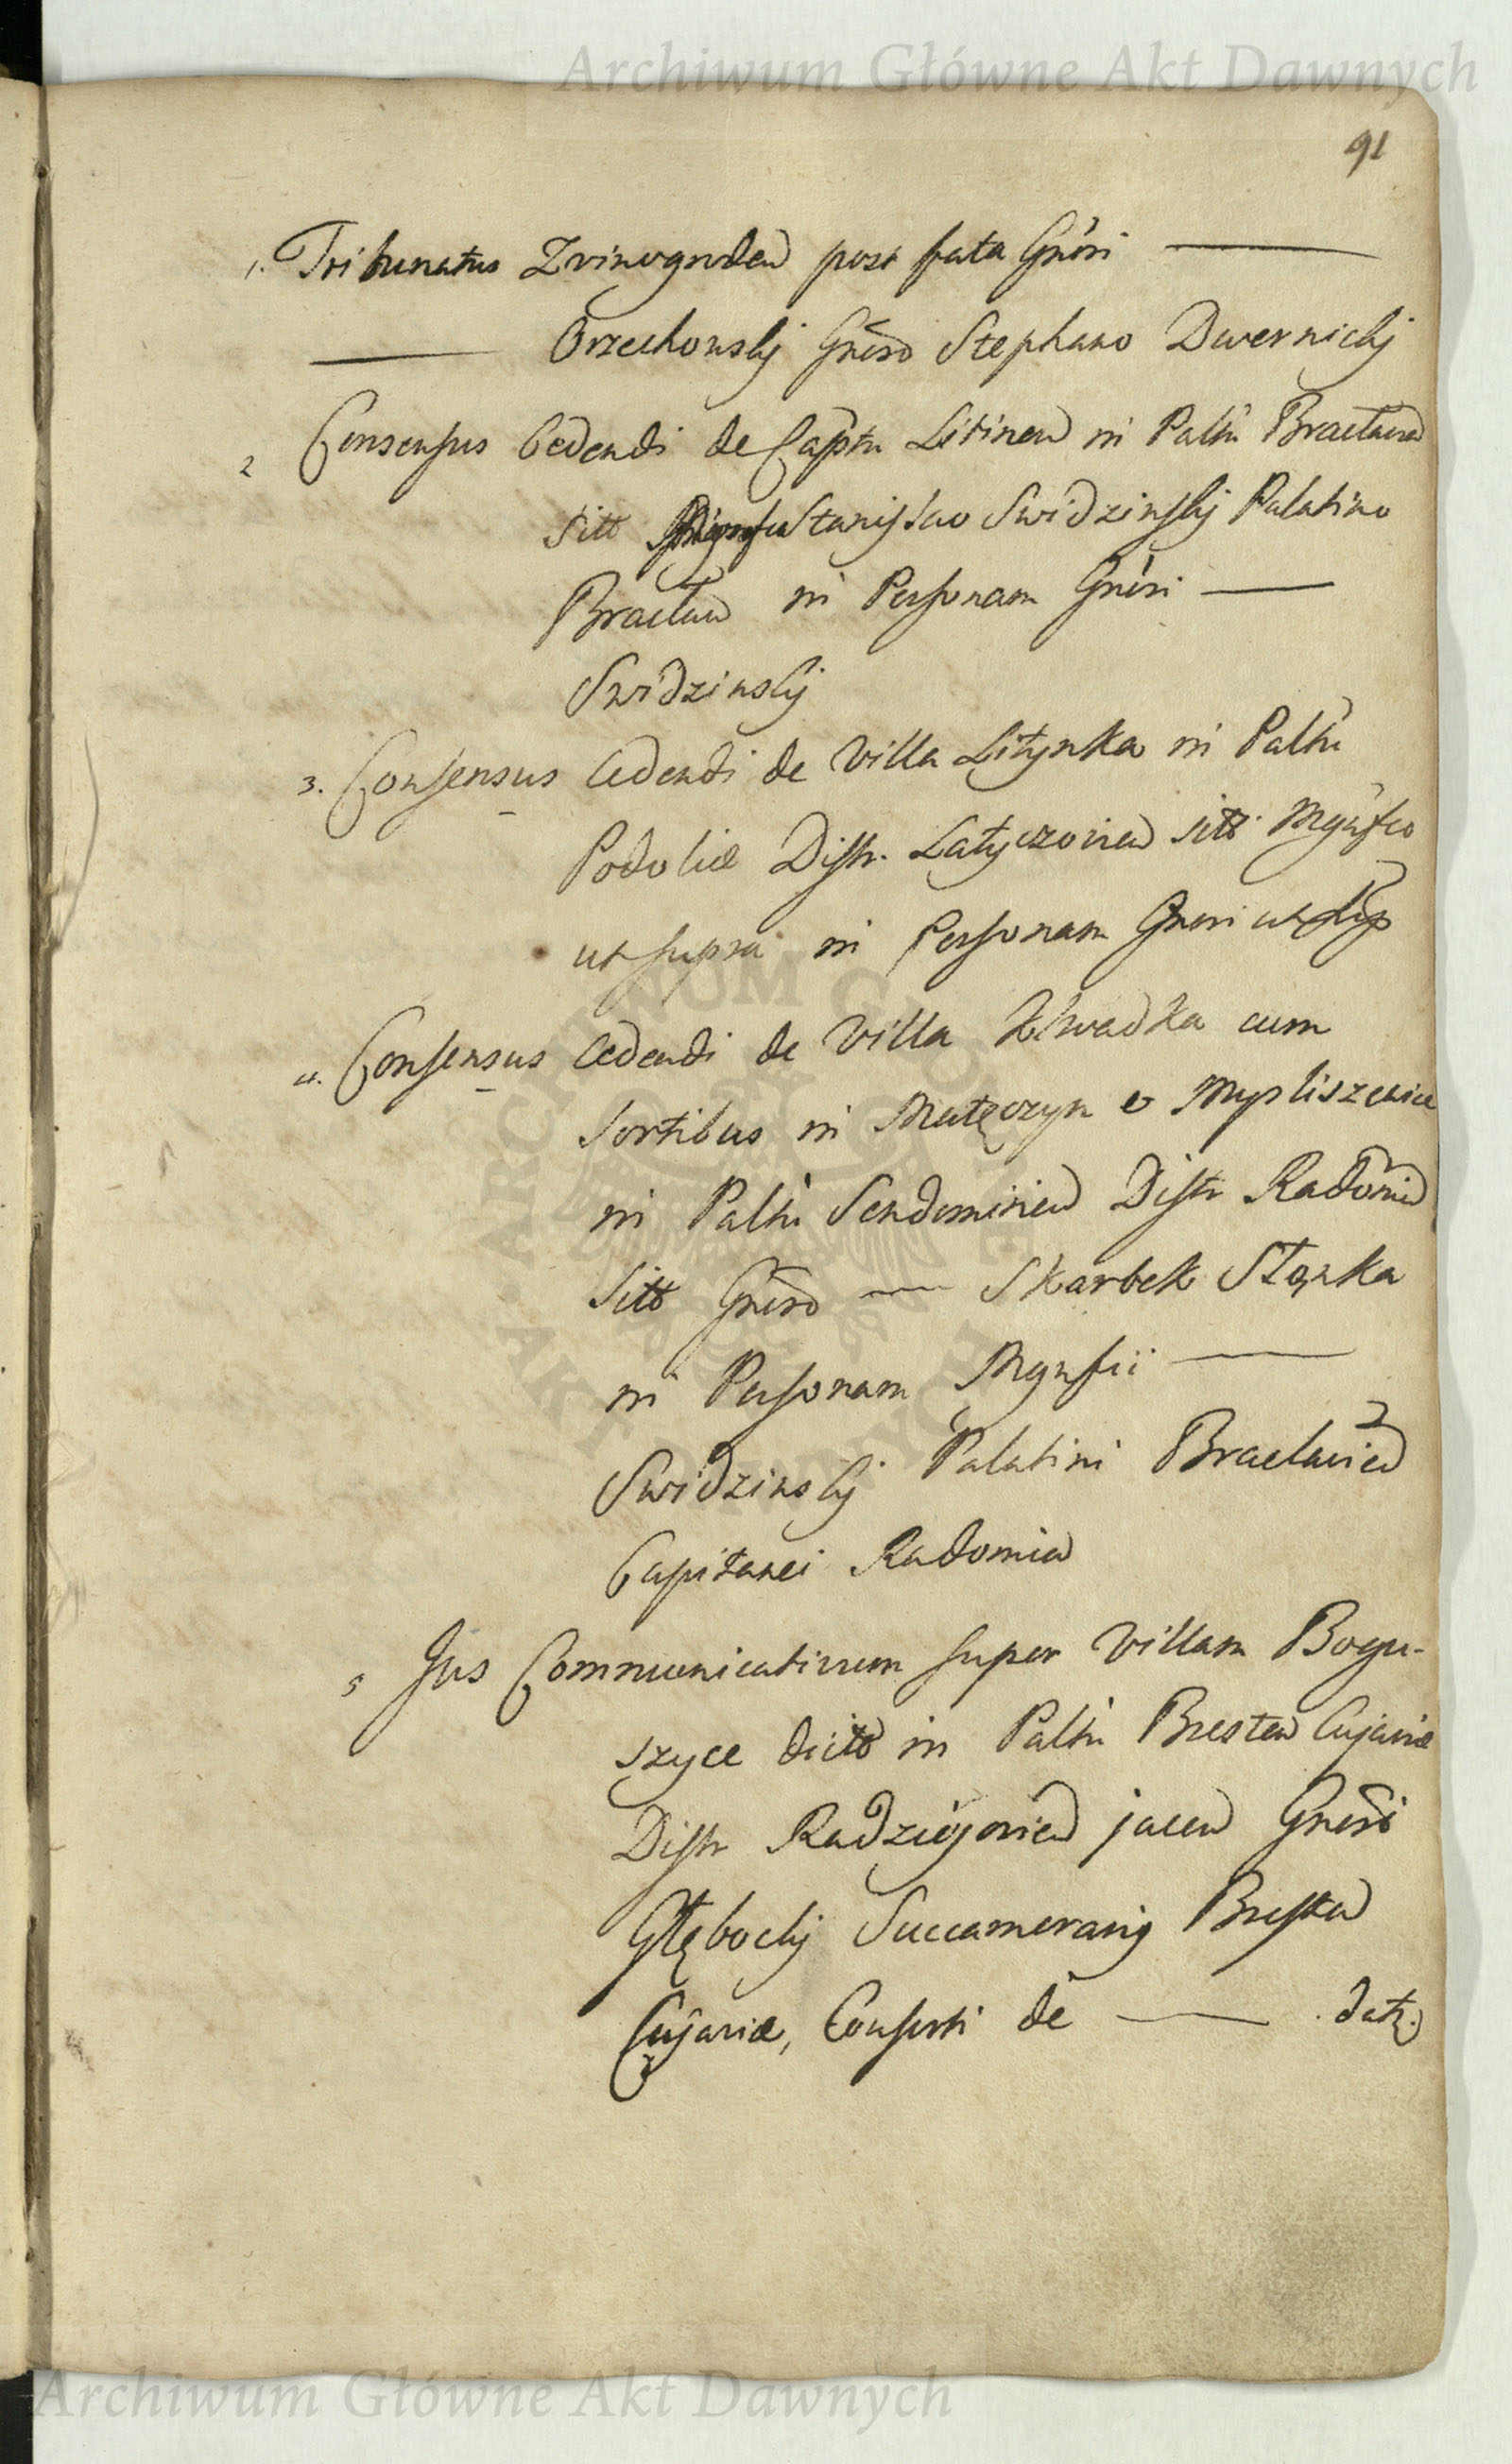 Archiwum Główne Akt Dawnych
91
1. Tribunatus Zvinogroden post fata Gnõsi —
— Orzechowskj Gnõso Stephano Dwernickj
2 Consensus Cedendi de Captu Litinen in Paltu Braclavien
sitt Stanislao Swidzinskj Palatino
Braclav in Personam Gnõsi —
Swidzinskj
3. Consensus Cedendi de Villa Litynka in Paltu
Podoliæ Distr. Latyczovien sitt Mgnfco
ut supra in Personam Gnõsi ut sup
4. Consensus Cedendi de Villa Klwadka cum
sortibus in Małęczyn & Mysliszewice
in Paltu Sendomirien Distr Radomien
sitt Gnõso — Skarbek Słonka
in Personam Mgnfii —
Swidzinskj Palatini Braclavien
Capitanei Radomien
5 Jus Communicativum super Villam Bogu-
szyce dict in Paltu Bresten Cujaviæ
Distr Radziejovien jacen Gnõsi
Głębockj Succamerarij Bresten
Cujaviæ, Consorti de — dat.
Archiwum Główne Akt Dawnych